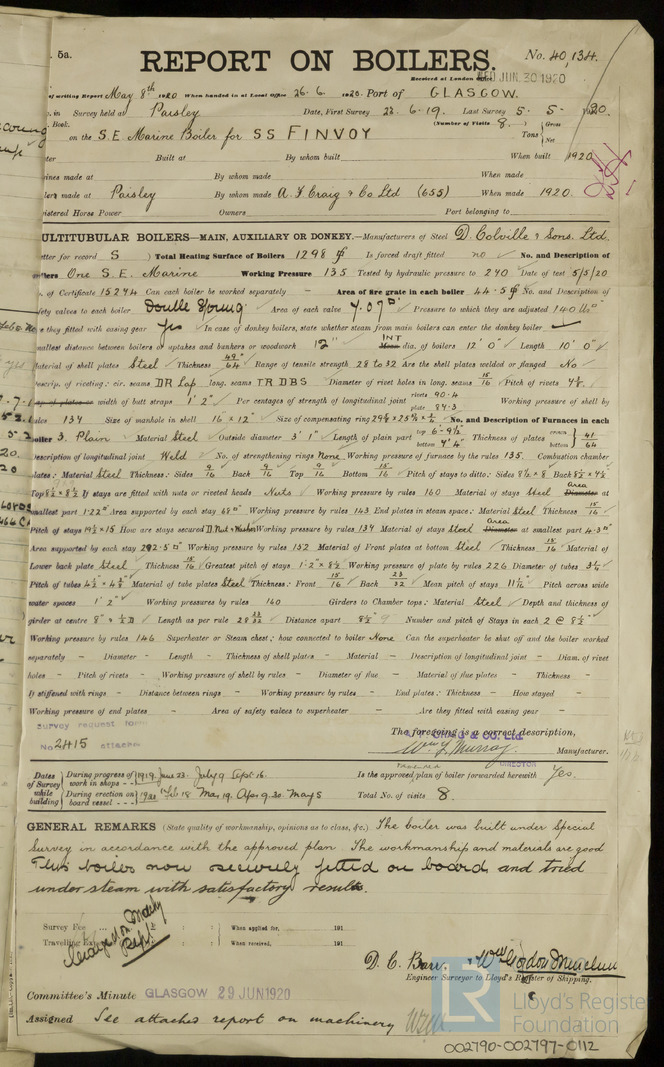 5a.
REPORT ON BOILERS.
No. 40,134.
Received at London Office WED JUN. 30 1920
of writing Report May 8th 1920 When handed in at Local Office 26.6.1920. Port of GLASGOW.
in Survey held at Paisley Date, First Survey 23-6-19. Last Survey 5-5-1920.
Book. (Number of Visits 8.) Gross
on the S.E. Marine Boiler for SS FINVOY Tons Net
Built at By whom built When built 1920
ines made at By whom made When made
lers made at Paisley By whom made A. F. Craig & Co Ltd (655) When made 1920.
istered Horse Power Owners Port belonging to
ULTITUBULAR BOILERS—MAIN, AUXILIARY OR DONKEY.—Manufacturers of Steel D. Colville & Sons. Ltd.
etter for record S ) Total Heating Surface of Boilers 1298 sf Is forced draft fitted no No. and Description of
oilers One S.E. Marine Working Pressure 135 Tested by hydraulic pressure to 240 Date of test 5/5/20
of Certificate 15294 Can each boiler be worked separately - Area of fire grate in each boiler 44.5 sf No. and Description of
fety valves to each boiler Double Spring Area of each valve 7.07 □" Pressure to which they are adjusted 140 lbs
e they fitted with easing gear Yes In case of donkey boilers, state whether steam from main boilers can enter the donkey boiler
mallest distance between boilers or uptakes and bunkers or woodwork 12" INT Mean dia. of boilers 12' 0" Length 10' 0"
Material of shell plates Steel Thickness 49/64 Range of tensile strength 28 to 32 Are the shell plates welded or flanged No
Descrip. of riveting: cir. seams DR Lap long. seams TR DBS Diameter of rivet holes in long. seams 15/16 Pitch of rivets 4 7/8
Lap of plates or width of butt straps 1' 2" Per centages of strength of longitudinal joint rivets 90.4 plate 84.3 Working pressure of shell by
rules 134 Size of manhole in shell 16" × 12" Size of compensating ring No. and Description of Furnaces in each
boiler 3. Plain Material Steel Outside diameter 3' 1" Length of plain part top 6'-9½" bottom 4" Thickness of plates crown bottom 41/64
Description of longitudinal joint Weld No. of strengthening rings None Working pressure of furnace by the rules 135. Combustion chamber
plates: Material Steel Thickness: Sides 9/16 Back 9/16 Top 9/16 Bottom 15/16 Pitch of stays to ditto: Sides 8½ × 8 Back 8½ × 7½
Top 8½ × 8½ If stays are fitted with nuts or riveted heads Nuts Working pressure by rules 160 Material of stays Steel Area Diameter at
smallest part 1.22 □" Area supported by each stay 68 □" Working pressure by rules 143 End plates in steam space: Material Steel Thickness 15/16
Pitch of stays 19½ × 15 How are stays secured D. Nut & Washer Working pressure by rules 134 Material of stays Steel Area Diameter at smallest part 4.3 □"
Area supported by each stay 292.5 □" Working pressure by rules 152 Material of Front plates at bottom Steel Thickness 15/16 Material of
Lower back plate Steel Thickness 15/16 Greatest pitch of stays 1'.2" × 8½ Working pressure of plate by rules 226 Diameter of tubes 3¼
Pitch of tubes 4½ × 4⅜ Material of tube plates Steel Thickness: Front 15/16 Back 23/32 Mean pitch of stays 11¼" Pitch across wide
water spaces 1' 2" Working pressures by rules 140 Girders to Chamber tops: Material Steel Depth and thickness of
girder at centre 8" × ½ D Length as per rule 28 23/32 Distance apart 8½ 9 Number and pitch of Stays in each 2 @ 8½"
Working pressure by rules 146 Superheater or Steam chest; how connected to boiler None Can the superheater be shut off and the boiler worked
separately - Diameter - Length - Thickness of shell plates - Material - Description of longitudinal joint - Diam. of rivet
holes - Pitch of rivets - Working pressure of shell by rules - Diameter of flue - Material of flue plates - Thickness -
If stiffened with rings - Distance between rings - Working pressure by rules - End plates: Thickness - How stayed -
Working pressure of end plates - Area of safety valves to superheater - Are they fitted with easing gear -
Survey request form
No 2415 attached
The foregoing is a correct description,
Wm Y. Murray. Manufacturer.
DIRECTOR
Dates of Survey while building During progress of work in shops - - 1919. June 23. July 9 Sept. 16. Is the approved plan of boiler forwarded herewith Yes.
During erection on board vessel - - - 1920 Feb 18 Mar 19. Apr 9. 30. May 5 Total No. of visits 8.
GENERAL REMARKS (State quality of workmanship, opinions as to class, &c.) The boiler was built under Special
Survey in accordance with the approved plan. The workmanship and materials are good
This boiler now securely fitted on board, and tried
under steam with satisfactory results.
Survey Fee ... ... When applied for, 191
Travelling Expenses When received, 191
Charged on Machy Rept
D. C. Barr, & Wm Gordon
Engineer Surveyor to Lloyd's Register of Shipping.
Committee's Minute GLASGOW 29 JUN 1920
Assigned See attached report on machinery
LR Lloyd's Register Foundation
002790-002797-0112